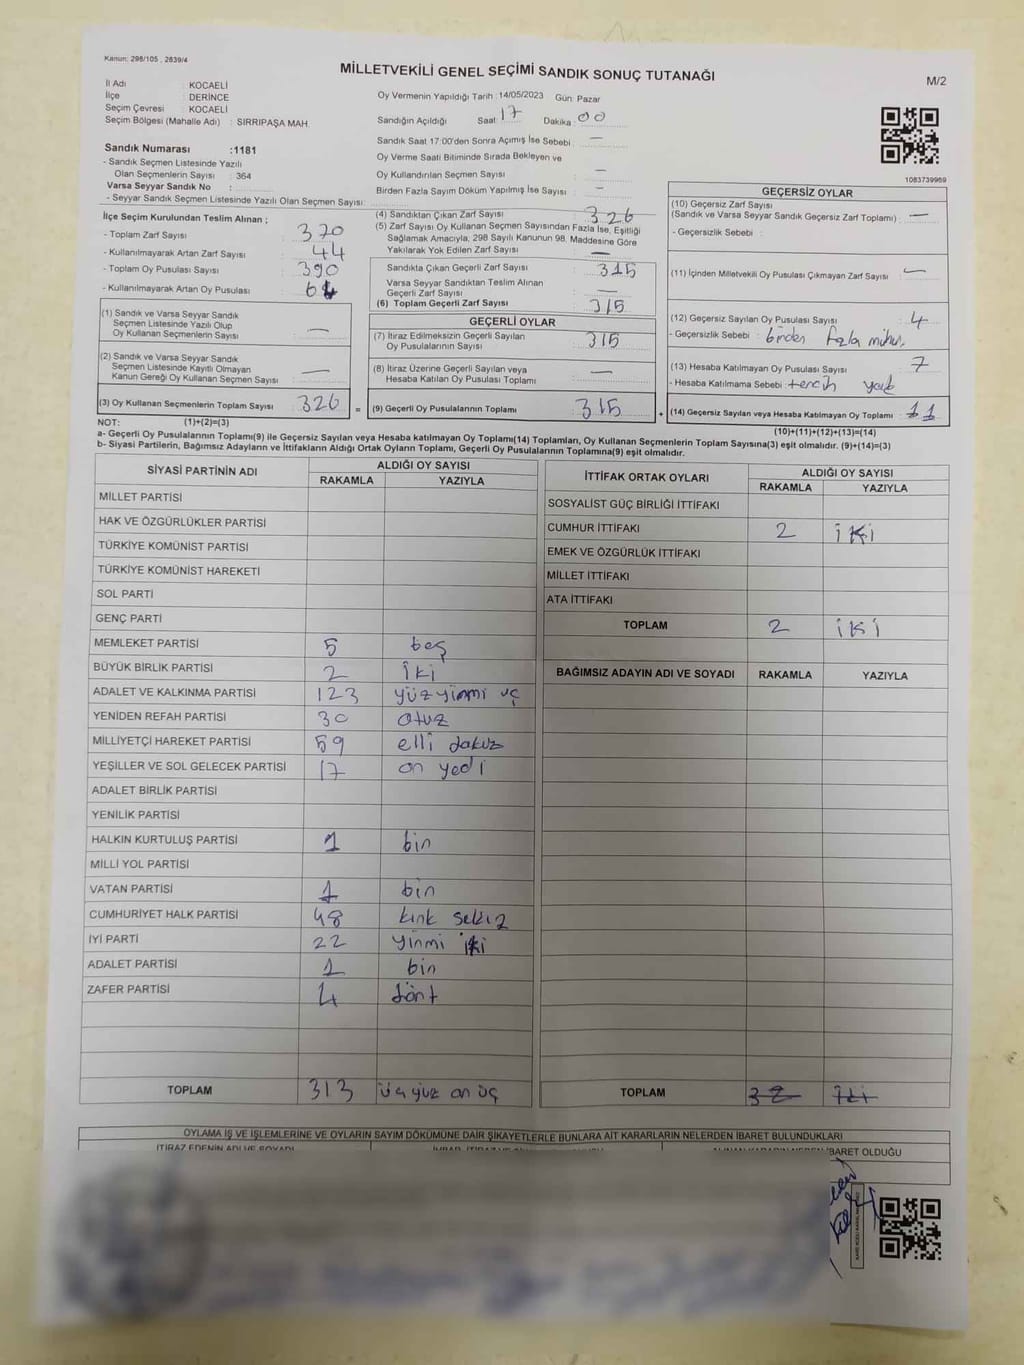 Kanun: 298/105 , 2839/4
MİLLETVEKİLİ GENEL SEÇİMİ SANDIK SONUÇ TUTANAĞI
M/2
İl Adı : KOCAELİ
İlçe : DERİNCE
Seçim Çevresi : KOCAELİ
Seçim Bölgesi (Mahalle Adı) : SIRRIPAŞA MAH.
Oy Vermenin Yapıldığı Tarih : 14/05/2023 Gün: Pazar
Sandığın Açıldığı Saat: 17 Dakika: 00
Sandık Saat 17:00'den Sonra Açılmış İse Sebebi : —
Oy Verme Saati Bitiminde Sırada Bekleyen ve
Oy Kullandırılan Seçmen Sayısı : —
Birden Fazla Sayım Döküm Yapılmış İse Sayısı : —
Sandık Numarası :1181
- Sandık Seçmen Listesinde Yazılı
Olan Seçmenlerin Sayısı : 364
Varsa Seyyar Sandık No :
- Seyyar Sandık Seçmen Listesinde Yazılı Olan Seçmen Sayısı:
1083739969
İlçe Seçim Kurulundan Teslim Alınan ;
- Toplam Zarf Sayısı : 370
- Kullanılmayarak Artan Zarf Sayısı : 44
- Toplam Oy Pusulası Sayısı : 390
- Kullanılmayarak Artan Oy Pusulası : 64
(1) Sandık ve Varsa Seyyar Sandık
Seçmen Listesinde Yazılı Olup
Oy Kullanan Seçmenlerin Sayısı : —
(2) Sandık ve Varsa Seyyar Sandık
Seçmen Listesinde Kayıtlı Olmayan
Kanun Gereği Oy Kullanan Seçmen Sayısı : —
(3) Oy Kullanan Seçmenlerin Toplam Sayısı : 326
(4) Sandıktan Çıkan Zarf Sayısı : 326
(5) Zarf Sayısı Oy Kullanan Seçmen Sayısından Fazla İse, Eşitliği
Sağlamak Amacıyla, 298 Sayılı Kanunun 98. Maddesine Göre
Yakılarak Yok Edilen Zarf Sayısı : —
Sandıkta Çıkan Geçerli Zarf Sayısı : 315
Varsa Seyyar Sandıktan Teslim Alınan
Geçerli Zarf Sayısı : —
(6) Toplam Geçerli Zarf Sayısı : 315
GEÇERLİ OYLAR
(7) İtiraz Edilmeksizin Geçerli Sayılan
Oy Pusulalarının Sayısı : 315
(8) İtiraz Üzerine Geçerli Sayılan veya
Hesaba Katılan Oy Pusulası Toplamı : —
= (9) Geçerli Oy Pusulalarının Toplamı : 315
GEÇERSİZ OYLAR
(10) Geçersiz Zarf Sayısı
(Sandık ve Varsa Seyyar Sandık Geçersiz Zarf Toplamı) : —
- Geçersizlik Sebebi :
(11) İçinden Milletvekili Oy Pusulası Çıkmayan Zarf Sayısı : —
(12) Geçersiz Sayılan Oy Pusulası Sayısı : 4
- Geçersizlik Sebebi : birden fazla mühür.
(13) Hesaba Katılmayan Oy Pusulası Sayısı : 7
- Hesaba Katılmama Sebebi : tercih yok
+ (14) Geçersiz Sayılan veya Hesaba Katılmayan Oy Toplamı : 11
NOT: (1)+(2)=(3)
(10)+(11)+(12)+(13)=(14)
a- Geçerli Oy Pusulalarının Toplamı(9) ile Geçersiz Sayılan veya Hesaba katılmayan Oy Toplamı(14) Toplamları, Oy Kullanan Seçmenlerin Toplam Sayısına(3) eşit olmalıdır. (9)+(14)=(3)
b- Siyasi Partilerin, Bağımsız Adayların ve İttifakların Aldığı Ortak Oyların Toplamı, Geçerli Oy Pusulalarının Toplamına(9) eşit olmalıdır.
SİYASİ PARTİNİN ADI
ALDIĞI OY SAYISI
RAKAMLA YAZIYLA
MİLLET PARTİSİ
HAK VE ÖZGÜRLÜKLER PARTİSİ
TÜRKİYE KOMÜNİST PARTİSİ
TÜRKİYE KOMÜNİST HAREKETİ
SOL PARTİ
GENÇ PARTİ
MEMLEKET PARTİSİ 5 beş
BÜYÜK BİRLİK PARTİSİ 2 iki
ADALET VE KALKINMA PARTİSİ 123 yüz yirmi üç
YENİDEN REFAH PARTİSİ 30 otuz
MİLLİYETÇİ HAREKET PARTİSİ 59 elli dokuz
YEŞİLLER VE SOL GELECEK PARTİSİ 17 on yedi
ADALET BİRLİK PARTİSİ
YENİLİK PARTİSİ
HALKIN KURTULUŞ PARTİSİ 1 bir
MİLLİ YOL PARTİSİ
VATAN PARTİSİ 1 bir
CUMHURİYET HALK PARTİSİ 48 kırk sekiz
İYİ PARTİ 22 yirmi iki
ADALET PARTİSİ 1 bir
ZAFER PARTİSİ 4 dört
TOPLAM 313 üç yüz on üç
İTTİFAK ORTAK OYLARI
ALDIĞI OY SAYISI
RAKAMLA YAZIYLA
SOSYALİST GÜÇ BİRLİĞİ İTTİFAKI
CUMHUR İTTİFAKI 2 iki
EMEK VE ÖZGÜRLÜK İTTİFAKI
MİLLET İTTİFAKI
ATA İTTİFAKI
TOPLAM 2 iki
BAĞIMSIZ ADAYIN ADI VE SOYADI RAKAMLA YAZIYLA
TOPLAM
OYLAMA İŞ VE İŞLEMLERİNE VE OYLARIN SAYIM DÖKÜMÜNE DAİR ŞİKAYETLERLE BUNLARA AİT KARARLARIN NELERDEN İBARET BULUNDUKLARI
İTİRAZ EDENİN ADI VE SOYADI
İBARET OLDUĞU